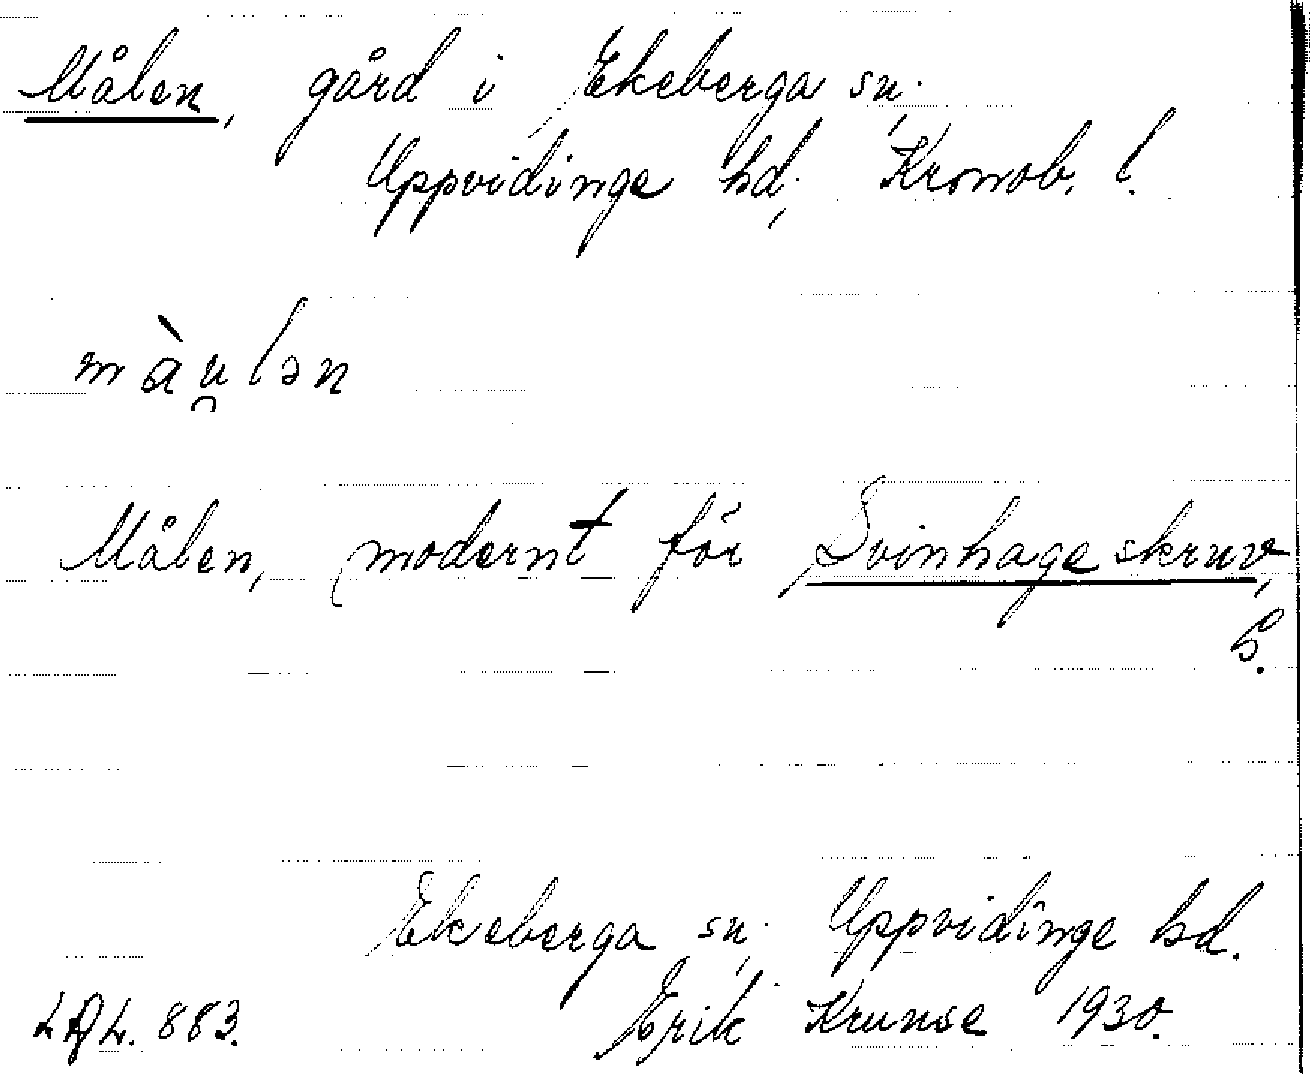 Målen, gård i Ekeberga sn,
Uppvidinge hd, Kronob. l.
màu̯lən
Målen, modernt för Svinhageskruv,
S.
Ekeberga sn, Uppvidinge hd.
LAL. 883. Erik Krunse 1930.